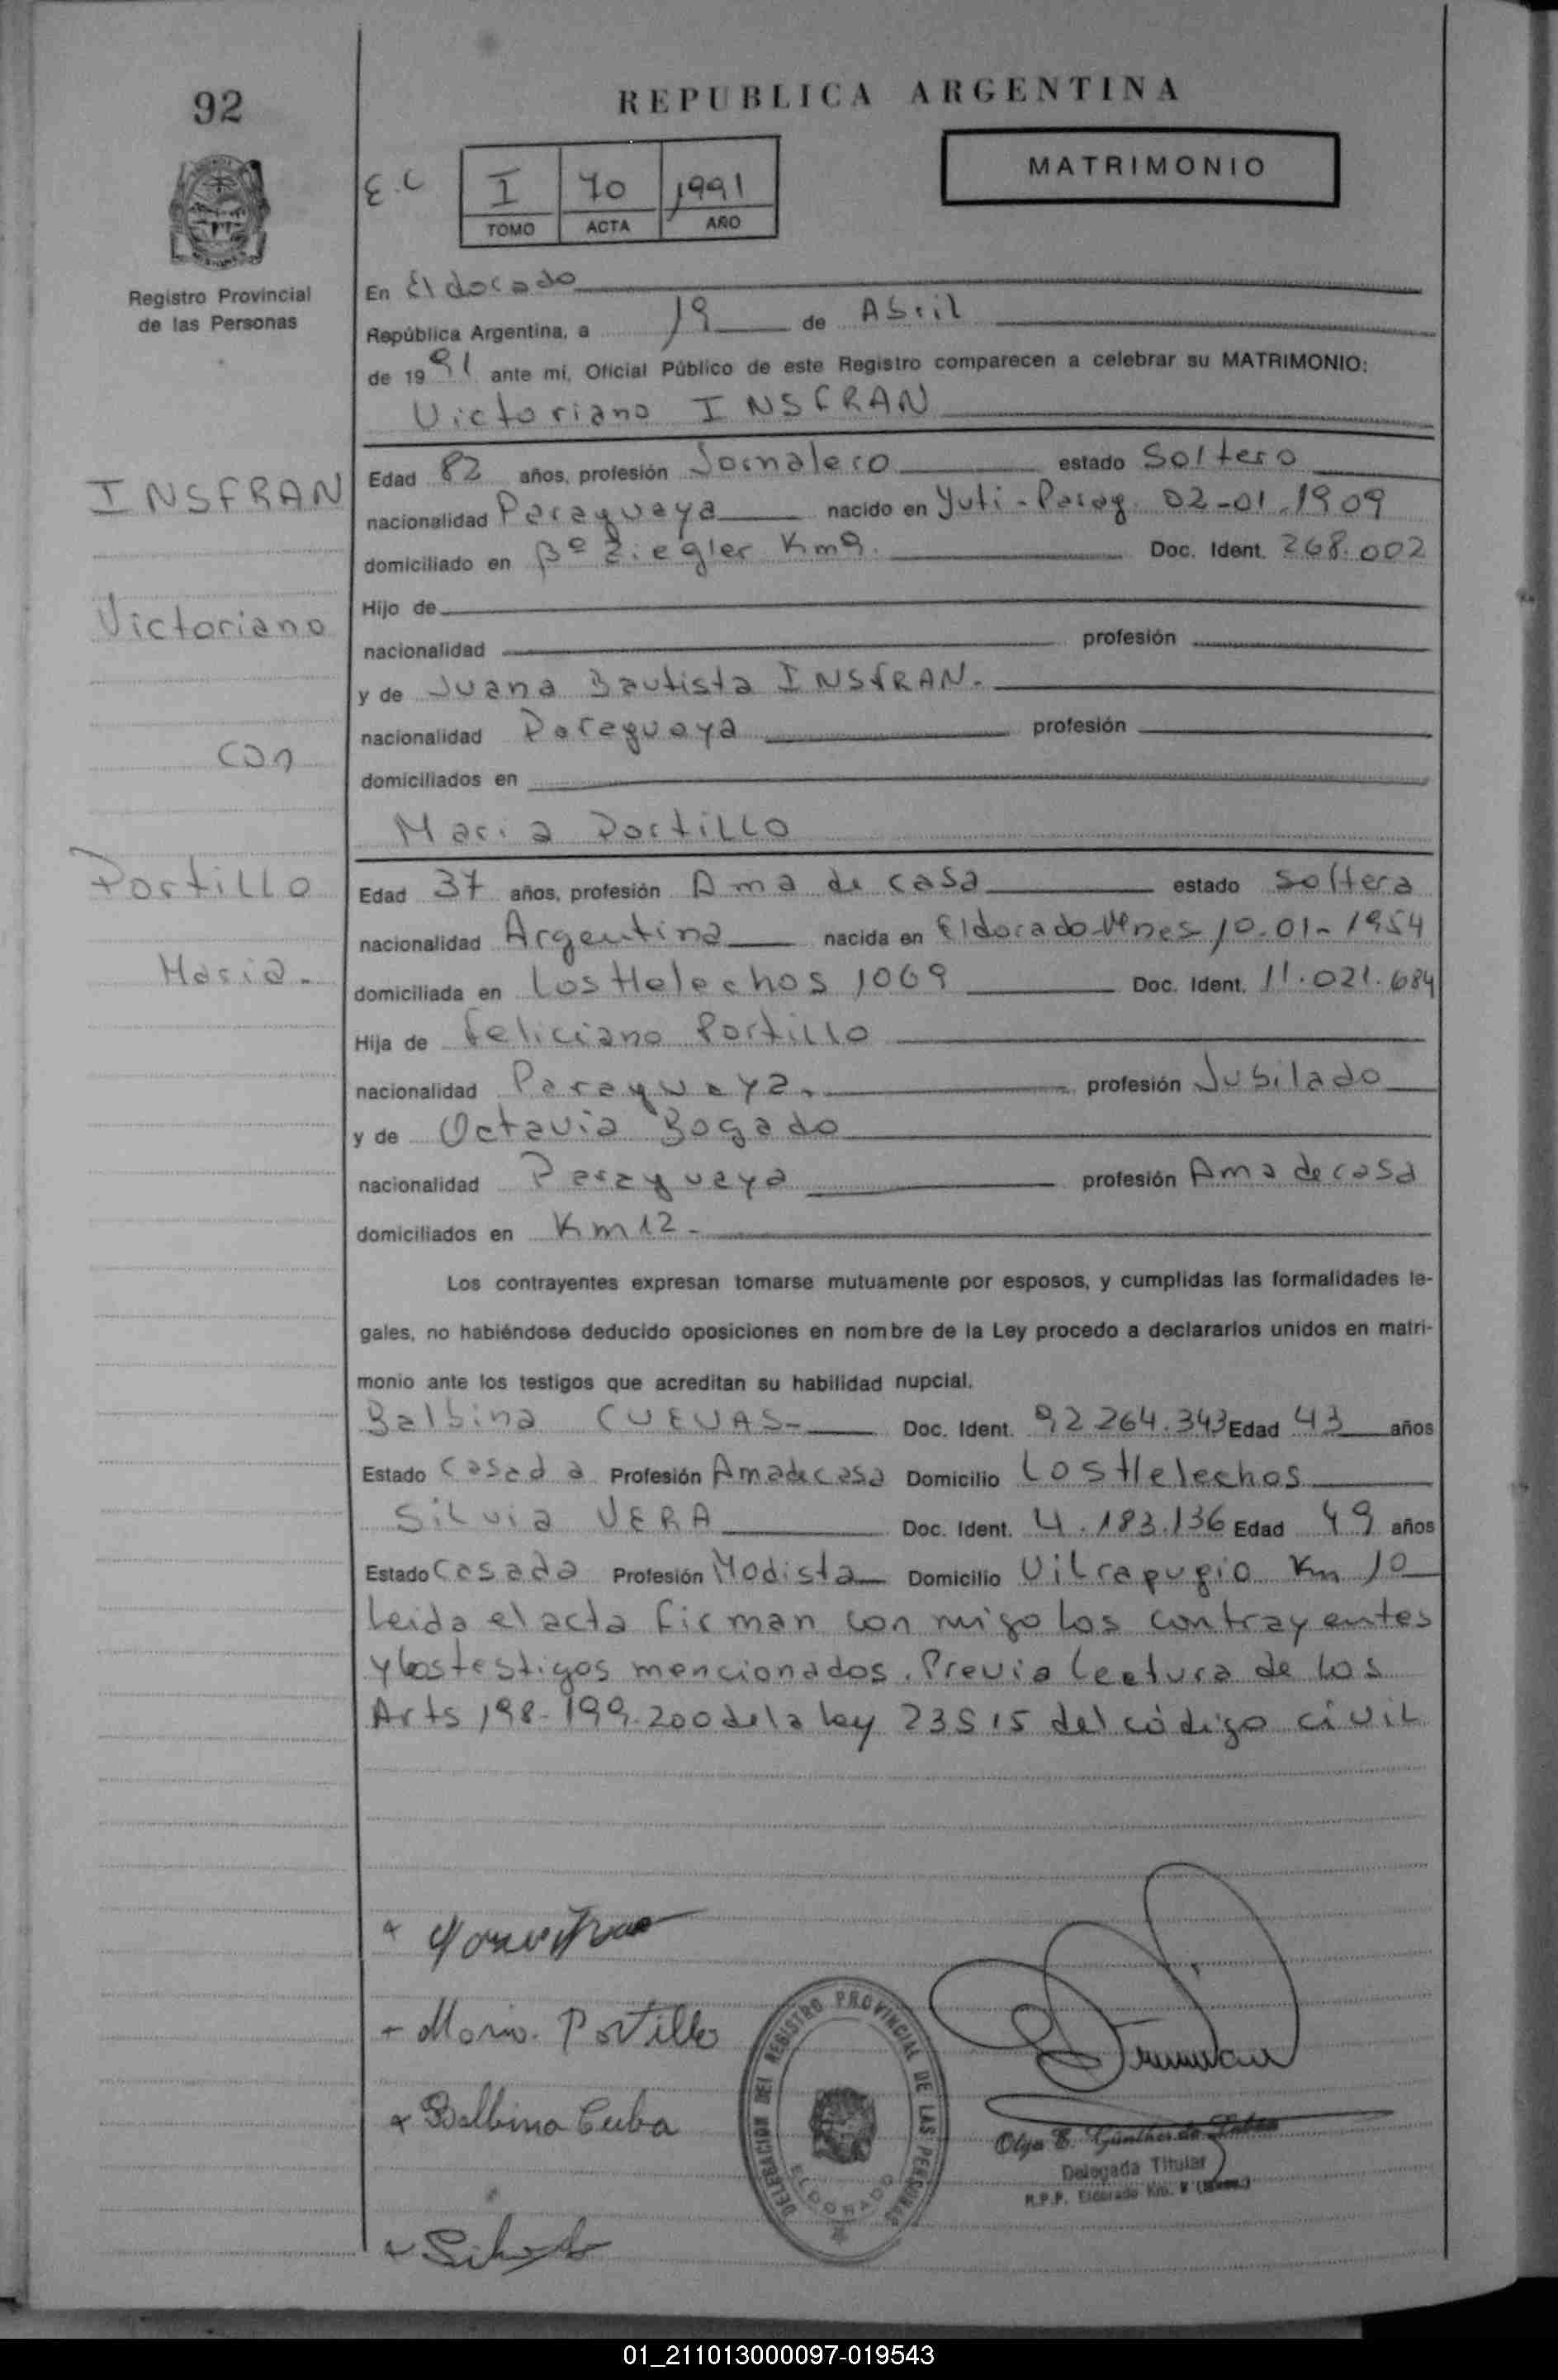 92
REPUBLICA ARGENTINA
MATRIMONIO
E.C
I 70 1991
TOMO ACTA AÑO
Registro Provincial
de las Personas
En Eldorado
República Argentina, a 19 de Abril
de 1991 ante mí, Oficial Público de este Registro comparecen a celebrar su MATRIMONIO:
Victoriano INSFRAN
INSFRAN
Victoriano
con
Portillo
Maria.
Edad 82 años, profesión Jornalero estado Soltero
nacionalidad Paraguaya nacido en Yuti - Parag. 02-01-1909
domiciliado en Bº Ziegler Km9. Doc. Ident. 268.002
Hijo de
nacionalidad profesión
y de Juana Bautista INSFRAN.
nacionalidad Paraguaya profesión
domiciliados en
Maria Portillo
Edad 37 años, profesión Ama de casa estado soltera
nacionalidad Argentina nacida en Eldorado-Mnes 10.01-1954
domiciliada en Los Helechos 1069 Doc. Ident. 11.021.684
Hija de Feliciano Portillo
nacionalidad Paraguaya. profesión Jubilado
y de Octavia Bogado
nacionalidad Paraguaya profesión Ama de casa
domiciliados en Km 12-
Los contrayentes expresan tomarse mutuamente por esposos, y cumplidas las formalidades le-
gales, no habiéndose deducido oposiciones en nombre de la Ley procedo a declararlos unidos en matri-
monio ante los testigos que acreditan su habilidad nupcial.
Balbina CUEVAS- Doc. Ident. 92 264.343 Edad 43 años
Estado Casada Profesión Ama de casa Domicilio Los Helechos
Silvia VERA Doc. Ident. 4.183.136 Edad 49 años
Estado Casada Profesión Modista Domicilio Vilcapugio Km 10
Leida el acta firman con migo los contrayentes
y los testigos mencionados. Previa lectura de los
Arts 198-199-200 de la ley 23515 del código civil
Maria Portillo
Balbina Cuba
DELEGACION DEL REGISTRO PROVINCIAL DE LAS PERSONAS
ELDORADO
Olga E. Günther de
Delegada Titular
R.P.P. Eldorado Km. 9
01_211013000097-019543